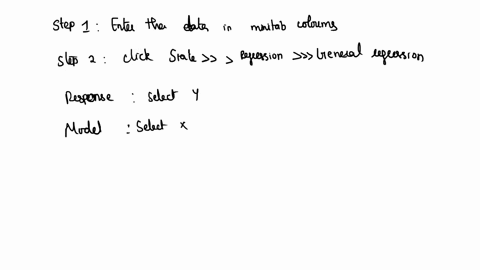 Step 1 : Enter the data in minitab coloums
Step 2 : click State >> > Regression >>> General regression
Response : select Y
Model : Select x